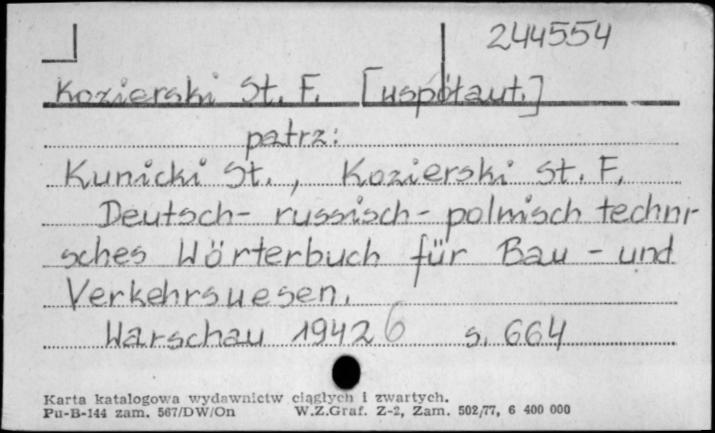 244554
Kozierski St. F. [współaut.]
patrz:
Kunicki St., Kozierski St. F.
Deutsch- russisch- polnisch techni-
sches Wörterbuch für Bau - und
Verkehrswesen.
Warschau 1942 6 s. 664
Karta katalogowa wydawnictw ciągłych i zwartych.
Pu-B-144 zam. 567/DW/On W.Z.Graf. Z-2, Zam. 502/77, 6 400 000